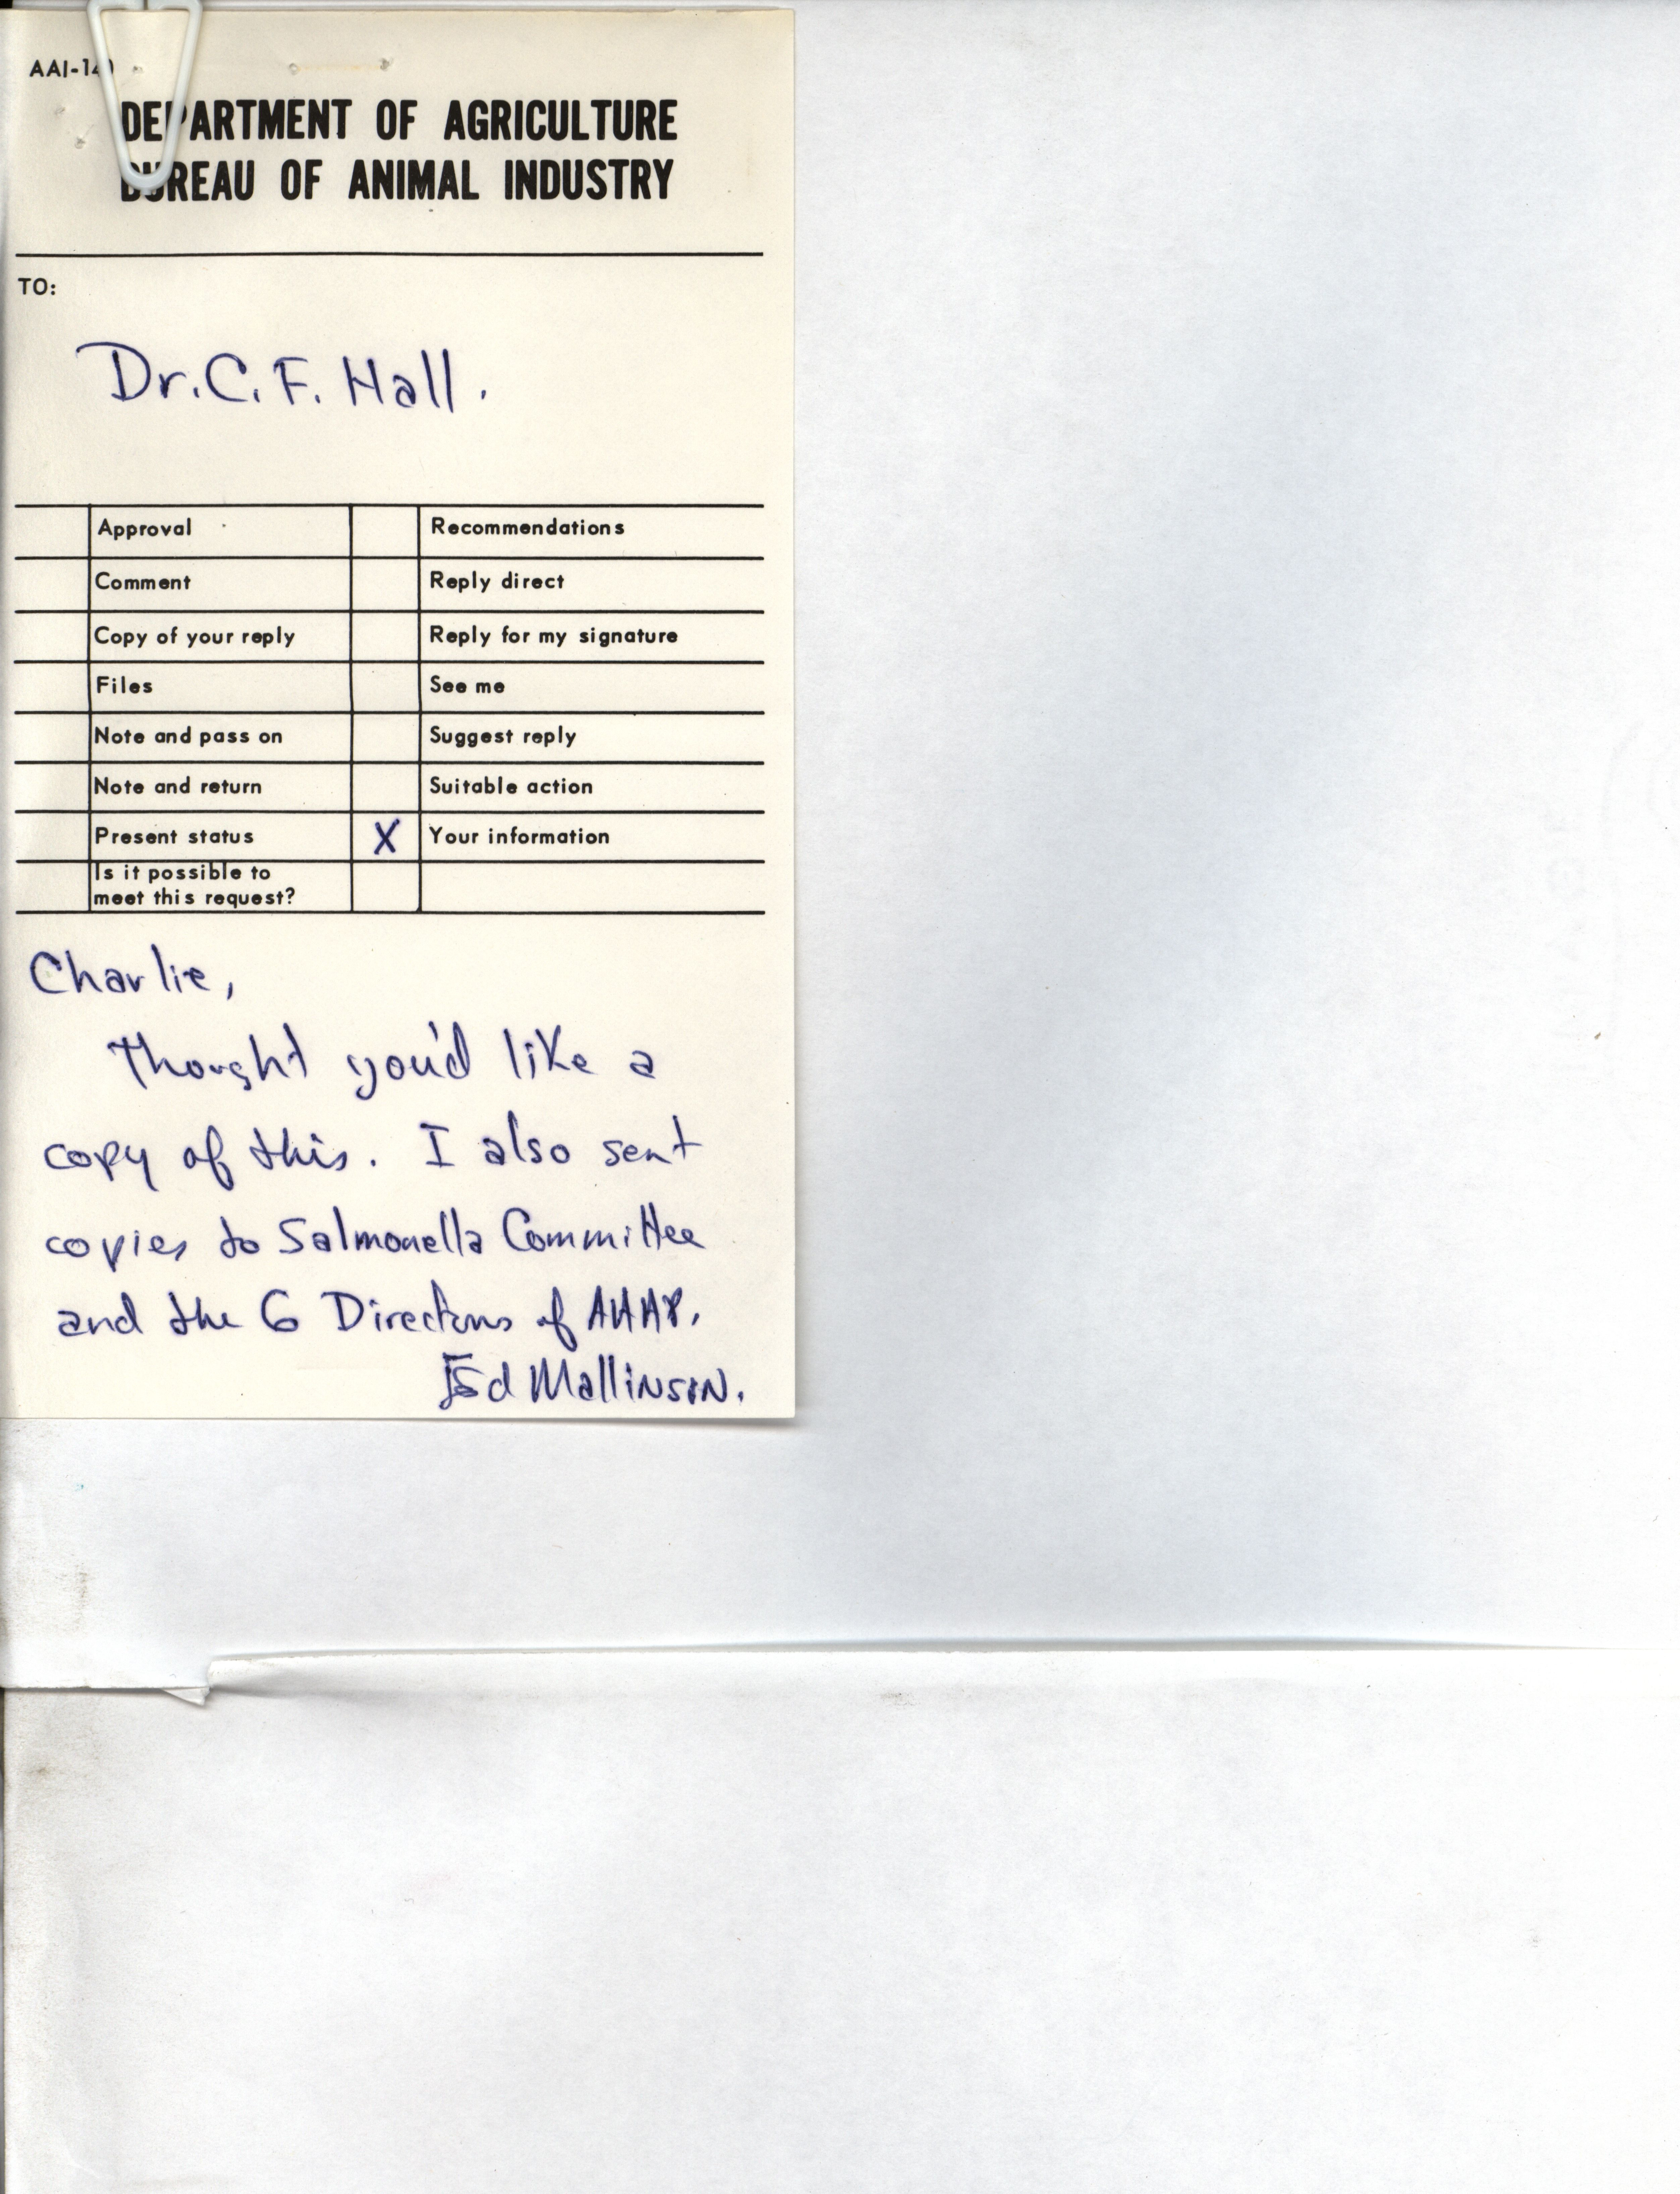 AAI-140
DEPARTMENT OF AGRICULTURE
BUREAU OF ANIMAL INDUSTRY
TO:
Dr. C. F. Hall.
Approval Recommendations
Comment Reply direct
Copy of your reply Reply for my signature
Files See me
Note and pass on Suggest reply
Note and return Suitable action
Present status X Your information
Is it possible to
meet this request?
Charlie,
Thought you'd like a
copy of this. I also sent
copies to Salmonella Committee
and the 6 Directors of
Ed Mallinson.